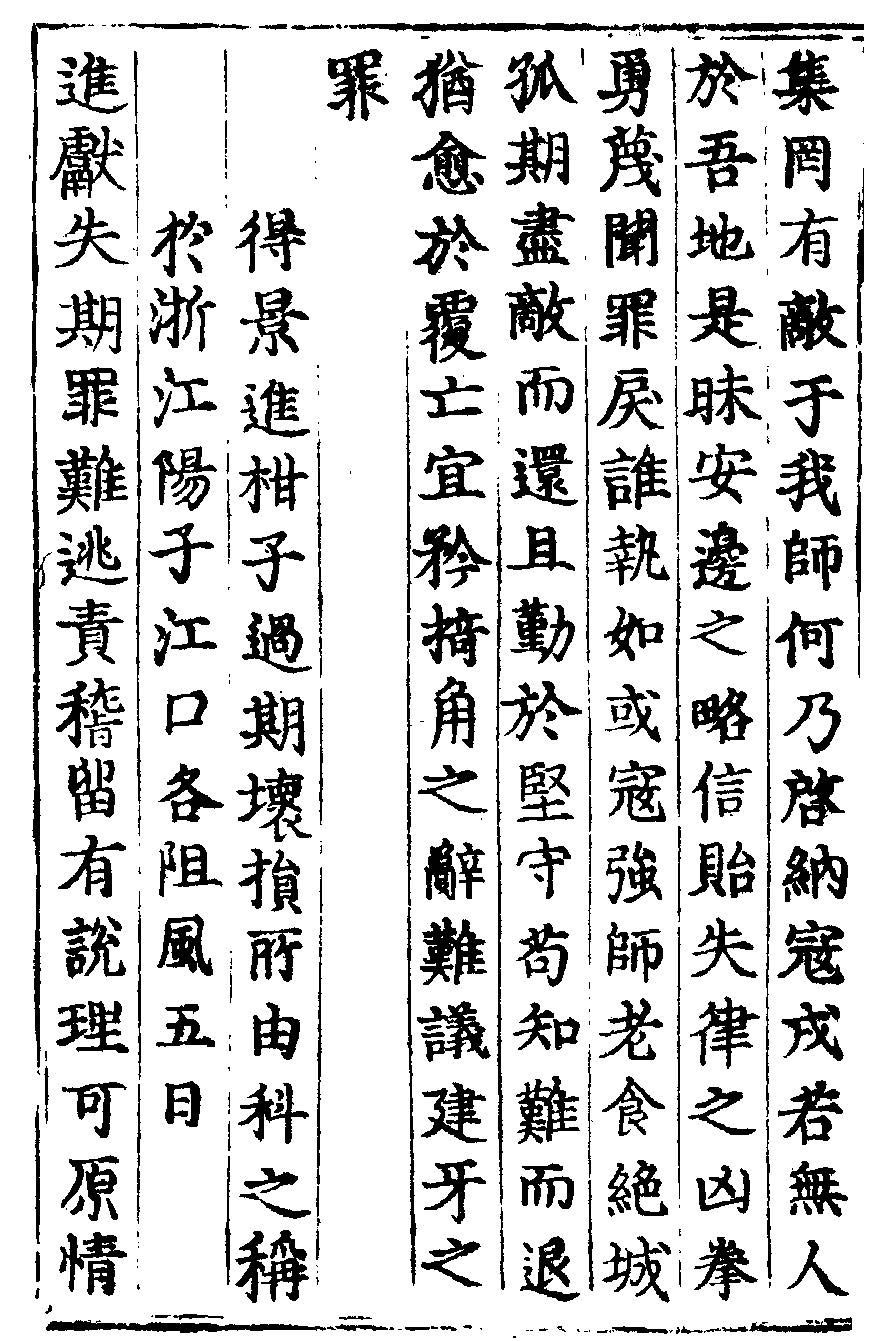 集罔有敵于我師何乃啓納寇戎若無人
於吾地是昧安邊之略信貽失律之凶拳
勇蔑聞罪戾誰執如或寇強師老食絕城
孤期盡敵而還且勤於堅守苟知難而退
猶愈於覆亡宜矜掎角之辭難議建牙之
罪
得景進柑子過期壞損所由科之稱
於浙江陽子江口各阻風五日
進獻失期罪難逃責稽留有說理可原情